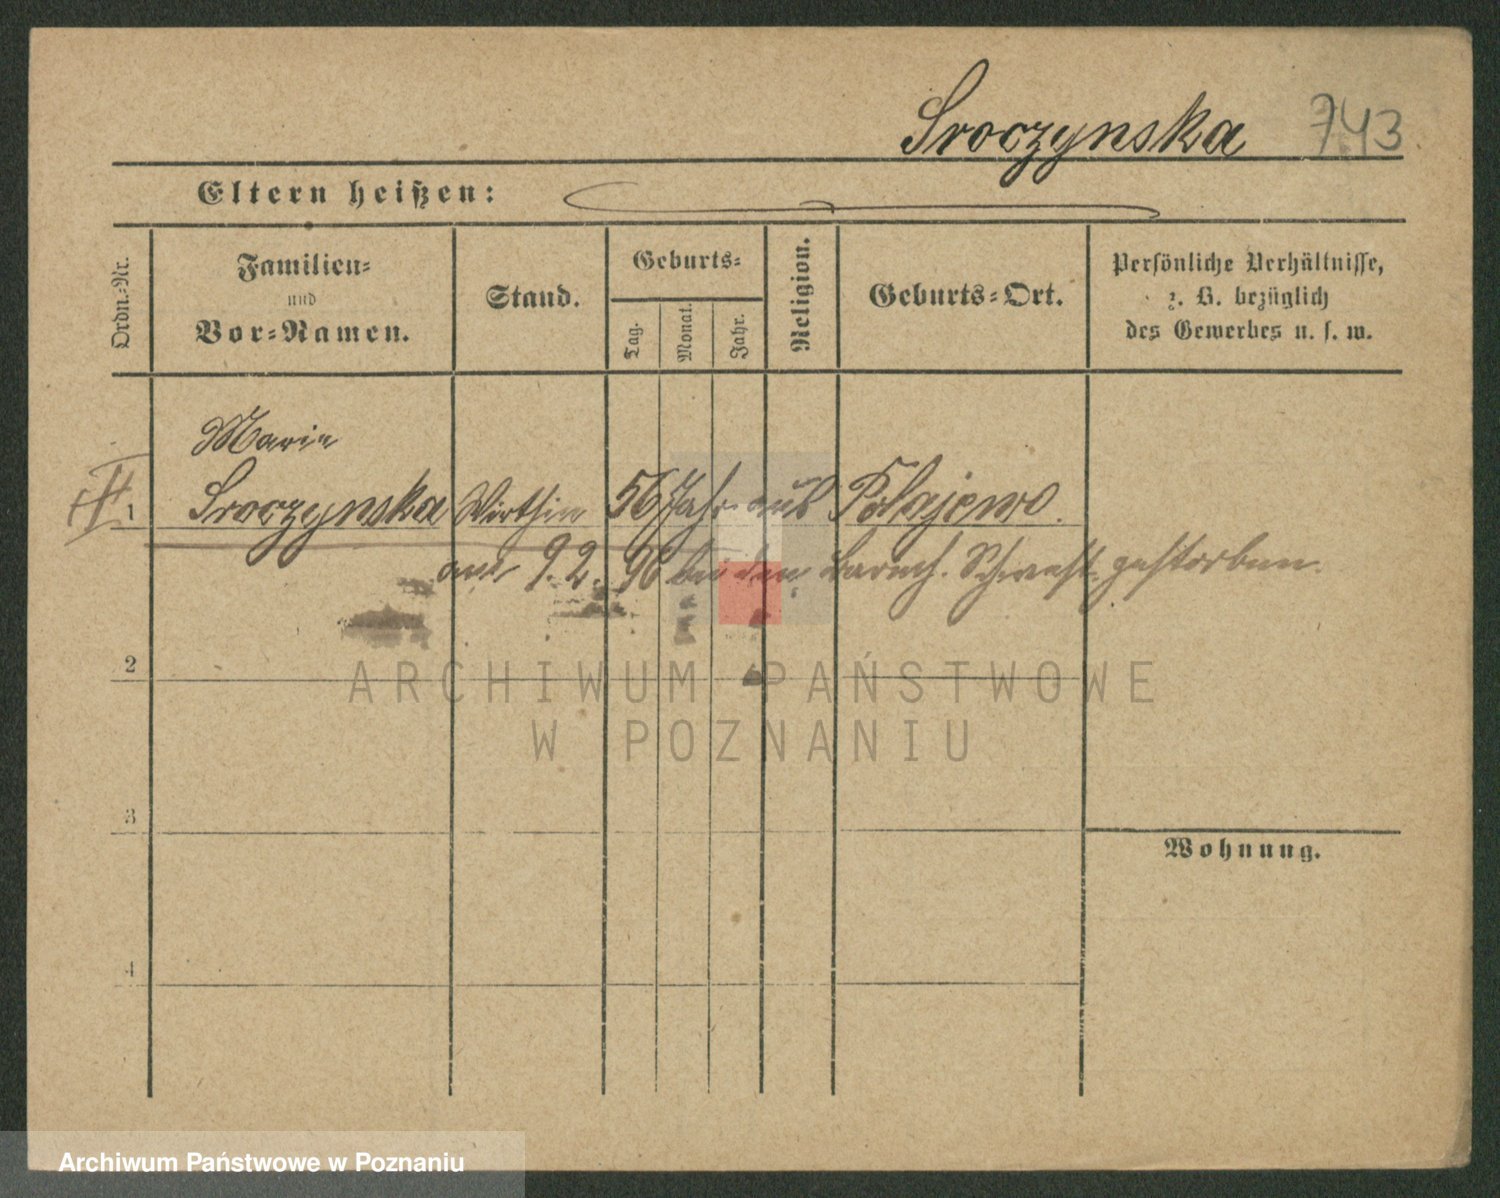 Sroczynska 743
Eltern heißen:
Ordn.-Nr.
Familien-
und
Vor-Namen.
Stand.
Geburts-
Tag.
Monat.
Jahr.
Religion.
Geburts-Ort.
Persönliche Verhältnisse,
z. B. bezüglich
des Gewerbes u. s. w.
Marie
1 Sroczynska Wirthin 56 Jahr aus Polajewo.
am 9.2.96 bei den barmh. Schwest. gestorben.
2
ARCHIWUM PAŃSTWOWE
W POZNANIU
3
Wohnung.
4
Archiwum Państwowe w Poznaniu